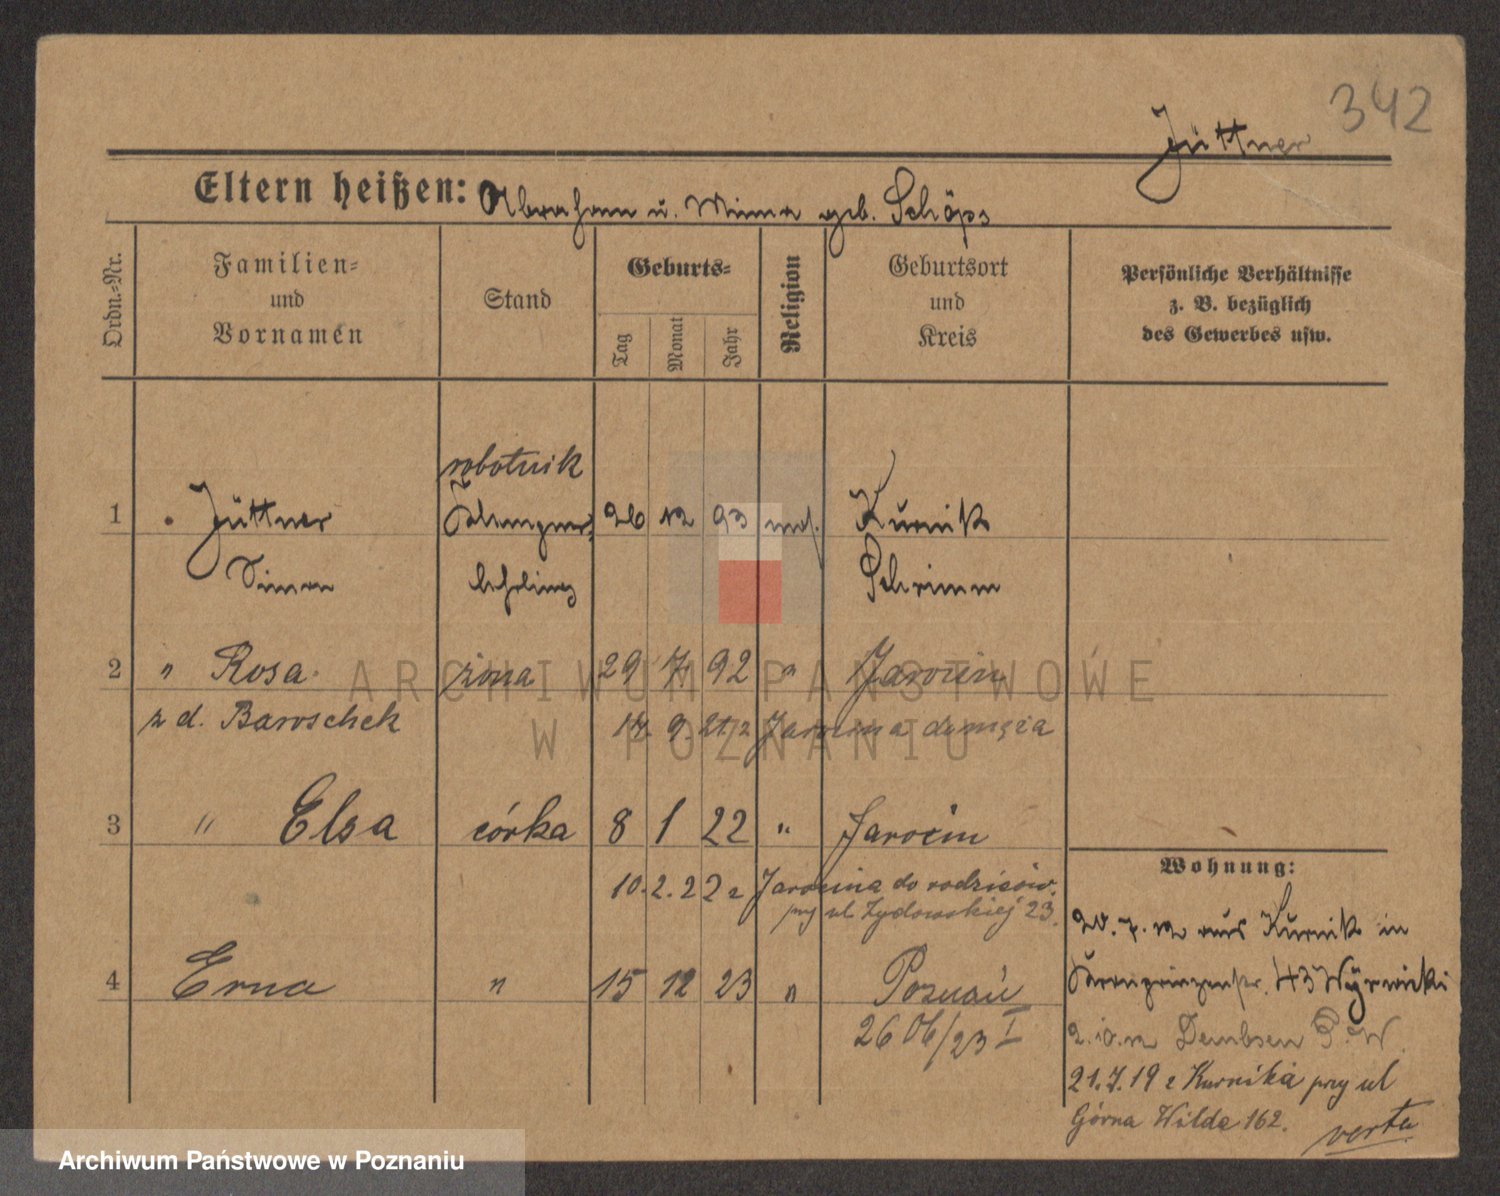 342
Jüttner
Eltern heißen: Abraham u. Mina geb. Schöps
Ordn.-Nr.
Familien-
und
Vornamen
Stand
Geburts-
Tag
Monat
Jahr
Religion
Geburtsort
und
Kreis
Persönliche Verhältnisse
z. B. bezüglich
des Gewerbes usw.
robotnik
1 Jüttner 26 12 93 mos. Kurnik
Simon lehrling Schrimm
2 " Rosa żona 29 7 92 " Jarocin
z d. Baroschek 17. 9. 21 z Jarocina do męża
3 " Elsa córka 8 1 22 " Jarocin
10. 2. 22 z Jarocina do rodziców
przy ul. Żydowskiej 23.
4 Erna " 15 12 23 " Poznań
26 06/23 I
Wohnung:
20. 7. 12 aus Kurnik in
Kronprinzenstr. 43 Wyrwicki
2. 10. 12 Dembsen P. W.
21. 7. 19 z Kurnika przy ul
Górna Wilda 162.
verte
ARCHIWUM PAŃSTWOWE
W POZNANIU
Archiwum Państwowe w Poznaniu